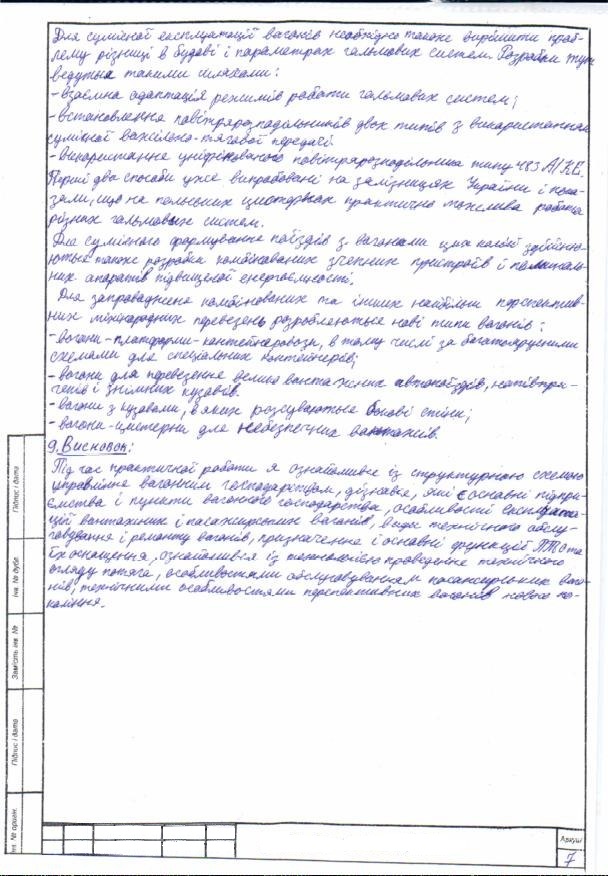 Для сумісної експлуатації вагонів необхідно також вирішити проб-
лему різниці в будові і параметрах гальмових систем. Розробки тут
ведуться такими шляхами:
- взаємна адаптація режимів роботи гальмових систем;
- встановлення повітророзподільників двох типів з використанням
сумісної важільно-тягової передачі.
- використання уніфікованого повітророзподільника типу 483 А/КЕ.
Перші два способи уже випробовані на залізницях України і пока-
зали, що на польських цистернах практично можлива робота
різних гальмових систем.
Для сумісного формування поїздів з вагонами цих колій здійсню-
ються також розробка комбінованих зчепних пристроїв і поглиналь-
них апаратів підвищеної енергоємності.
Для запровадження комбінованих та інших найбільш перспектив-
них міжнародних перевезень розробляються нові типи вагонів:
- вагони-платформи-контейнеровози, в тому числі за багатоярусними
схемами для спеціальних контейнерів;
- вагони для перевезення великовантажних автопоїздів, напівпри-
чепів і знімних кузовів.
- вагони з кузовами, в яких розсуваються бокові стіни;
- вагони-цистерни для небезпечних вантажів.
9. Висновок:
Під час практичної роботи я ознайомився із структурною схемою
управління вагонним господарством, дізнався, які є основні підпри-
ємства і пункти вагонного господарства, особливості експлуата-
ції вантажних і пасажирських вагонів, види технічного обслу-
говування і ремонту вагонів, призначення і основні функції ПТО та
їх оснащення, ознайомився із технологією проведення технічного
огляду потяга, особливостями обслуговуванням пасажирських ваго-
нів, технічними особливостями перспективних вагонів нового по-
коління.
Підпис і дата
Інв. № дубл.
Замість інв. №
Підпис і дата
Інв. № оригін.
Аркуш
7